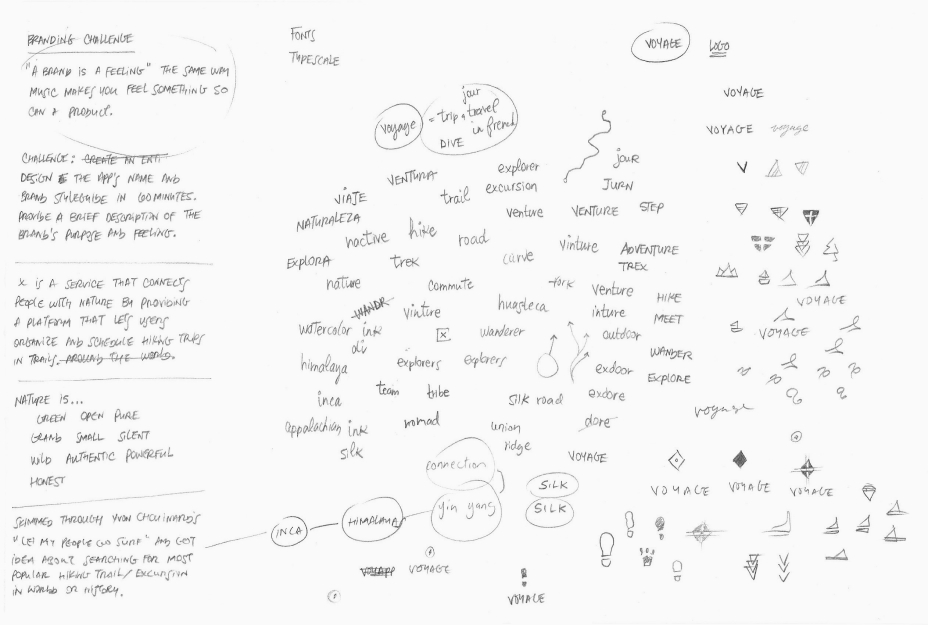 BRANDING CHALLENGE
"A BRAND IS A FEELING" THE SAME WAY
MUSIC MAKES YOU FEEL SOMETHING SO
CAN A PRODUCT.
CHALLENGE: CREATE AN ENTI
DESIGN THE APP'S NAME AND
BRAND STYLEGUIDE IN 60 MINUTES.
PROVIDE A BRIEF DESCRIPTION OF THE
BRAND'S PURPOSE AND FEELING.
X IS A SERVICE THAT CONNECTS
PEOPLE WITH NATURE BY PROVIDING
A PLATFORM THAT LETS USERS
ORGANIZE AND SCHEDULE HIKING TRIPS
IN TRAILS. AROUND THE WORLD.
NATURE IS...
GREEN OPEN PURE
GRAND SMALL SILENT
WILD AUTHENTIC POWERFUL
HONEST
SKIMMED THROUGH YVON CHOUINARD'S
"LET MY PEOPLE GO SURF" AND GOT
IDEA ABOUT SEARCHING FOR MOST
POPULAR HIKING TRAIL/EXCURSION
IN WORLD OR HISTORY.
FONTS
TYPESCALE
voyage
jour
= trip, travel
in french
DIVE
VENTURA
explorer
VIAJE
trail
excursion
NATURALEZA
venture
VENTURE
STEP
jour
JURN
nactive
hike
road
vinture
ADVENTURE
EXPLORA
trek
carve
TREX
nature
commute
fork
venture
HIKE
WANDR
vinture
huasteca
inture
MEET
watercolor
ink
x
wanderer
outdoor
div
WANDER
himalaya
explorers
explorers
exdoor
EXPLORE
inca
team
tribe
silk road
exdore
appalachian
ink
nomad
union
dore
silk
ridge
connection
VOYAGE
SILK
SILK
INCA
HIMALAYA
yin yang
VOYAPP
VOYAGE
VOYAGE
VOYAGE
LOGO
VOYAGE
VOYAGE
voyage
V
VOYAGE
VOYAGE
voyage
VOYAGE
VOYAGE
VOYAGE